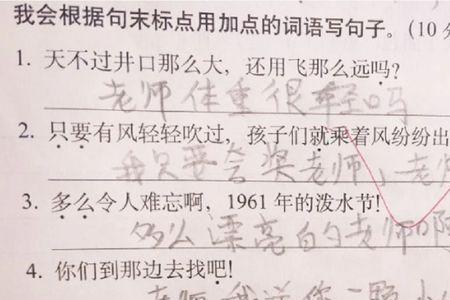 我会根据句末标点用加点的词语写句子。(10分
1. 天不过井口那么大，还用飞那么远吗?
老师体重很轻吗
2. 只要有风轻轻吹过，孩子们就乘着风纷纷出
我只要会奖老师，老师
3. 多么令人难忘啊，1961 年的泼水节!
多么漂亮的老师啊
4. 你们到那边去找吧!
老师我送你一颗